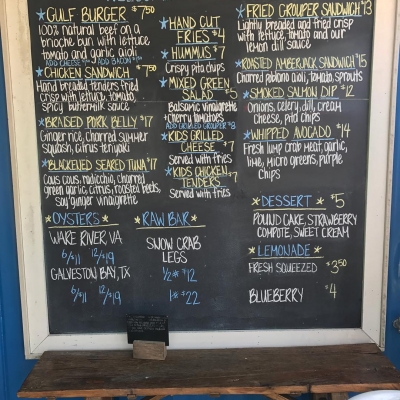 GULF BURGER $7.50
100% natural beef on a
brioche bun with lettuce
tomato and garlic aioli
ADD CHEESE ADD BACON
CHICKEN SANDWICH $7.50
Hand breaded tenders fried
crisp with lettuce, tomato,
spicy buttermilk sauce
BRAISED PORK BELLY $17
Ginger rice, charred summer
squash, citrus teriyaki
BLACKENED SEARED TUNA $17
Cous cous, radicchio, charred
green garlic, citrus, roasted beets,
soy ginger vinaigrette
*OYSTERS*
WARE RIVER, VA
6/$11 12/$19
GALVESTON BAY, TX
6/$11 12/$19
HAND CUT
FRIES $4
HUMMUS $7
Crispy pita chips
MIXED GREEN
SALAD $5
Balsamic vinaigrette
+ Cherry tomatoes
ADD PICKLED GROUPER $8
KIDS GRILLED
CHEESE $7
served with fries
KIDS CHICKEN
TENDERS $7
served with fries
*RAW BAR*
SNOW CRAB
LEGS
1/2# $12
1# $22
FRIED GROUPER SANDWICH $13
Lightly breaded and fried crisp
with lettuce, tomato and our
lemon dill sauce
ROASTED AMBERJACK SANDWICH $15
Charred poblano aioli, tomato, sprouts
SMOKED SALMON DIP $12
Onions, celery, dill, cream
cheese, pita chips
WHIPPED AVOCADO $14
Fresh lump crab meat, garlic,
lime, micro greens, purple
chips
*DESSERT* $5
POUND CAKE, STRAWBERRY
COMPOTE, SWEET CREAM
*LEMONADE*
FRESH SQUEEZED $3.50
BLUEBERRY $4